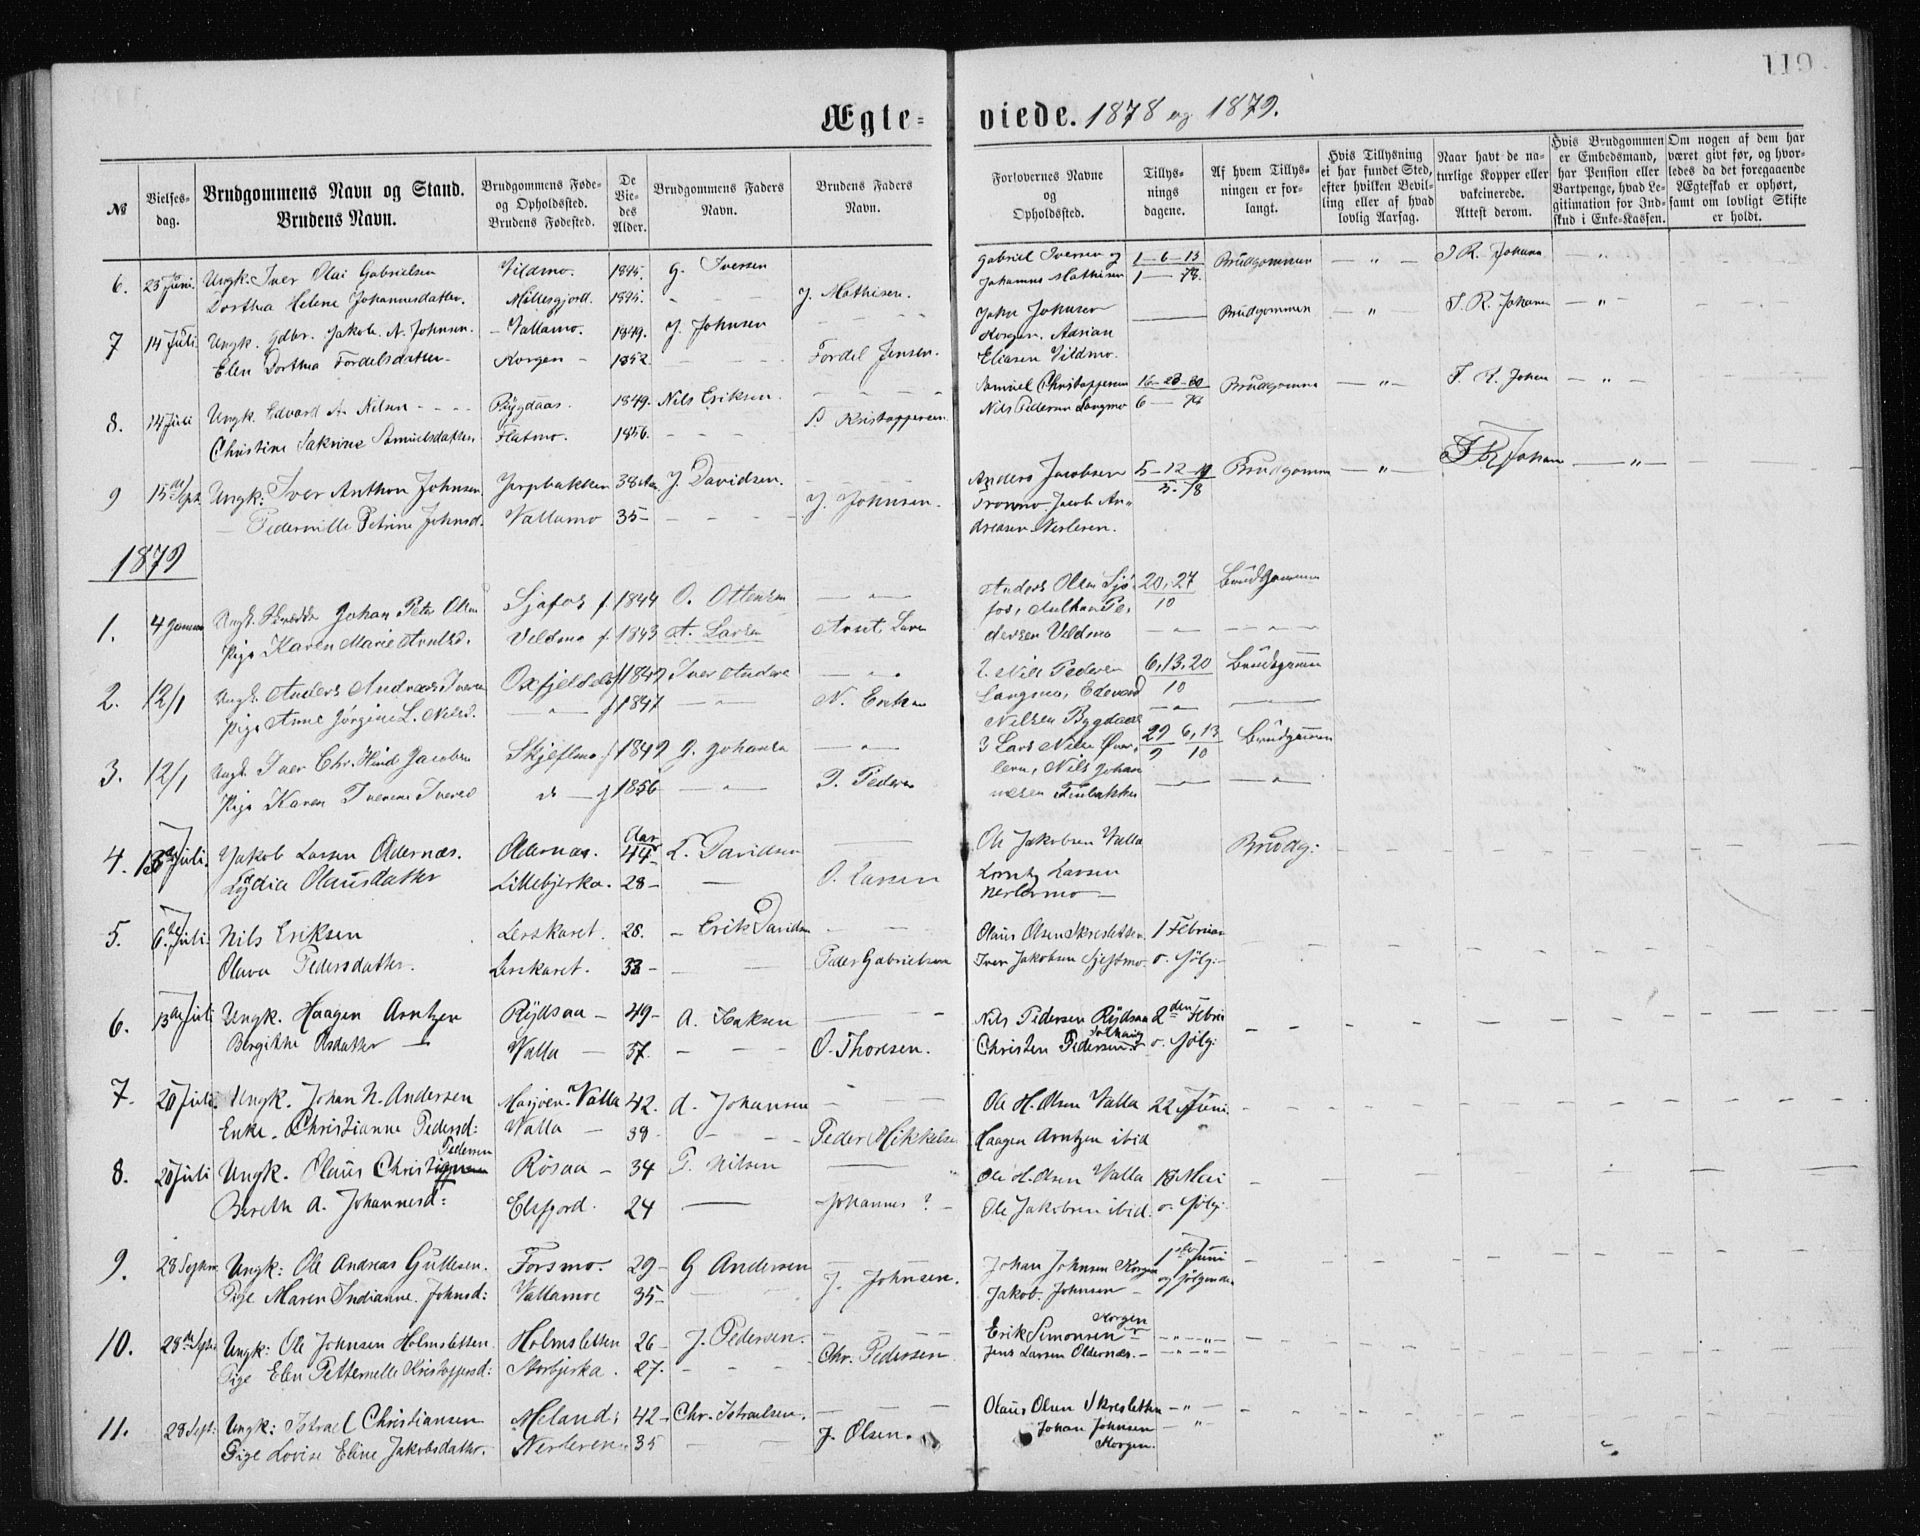 119
Ægteviede. 1878 og 1879.
№
Vielsesdag.
Brudgommens Navn og Stand.
Brudens Navn.
Brudgommens Føde- og Opholdssted.
Brudens Fødested.
De Viedes Alder.
Brudgommens Faders Navn.
Brudens Faders Navn.
Forlovernes Navne og Opholdsted.
Tillysningsdagene.
Af hvem Tillysningen er forlangt.
Hvis Tillysning ei har fundet Sted, efter hvilken Bevilling eller af hvad lovlig Aarsag.
Naar havt de naturlige Kopper eller vakcinerede. Attest derom.
Hvis Brudgommen er Embedsmand, har Pension eller Vartpenge, hvad Legitimation for Indskud i Enke-Kassen.
Om nogen af dem har været givt før, og hvorledes da det foregaaende Ægteskab er ophørt, samt om lovligt Skifte er holdt.
6. 23 Juni. Ungk. Iver Olai Gabrielsen Vildmo. 1845. G. Iversen Gabriel Iversen og 1-6-13 Brudgommen — " — J R. Johann — " —
Dorthea Helene Johannesdatter. Millesgjord. 1845. - - - J. Mathisen. Johannes Mathisen 1 — 78.
7 14 Juli Ungk. Gdbr. Jakob A. Johnsen. - Vallamo. 1849. J. Johnsen - - - John Johnsen — Brudgommen — " — J. R. Johann — " —
Elen Dorthea Fordelsdatter - Korgen - 1852. - - - Fordel Jensen. Korgen. Adrian
Eliasen Vildmo.
8. 14 Juli Ungk. Edvard A. Nilsen - - - Rygdaas. 1849. Nils Eriksen. - - - Samuel Christoffersen 16-23-30 Brudgomme — " — J. R. Johan — " —
Christine Jakrine Samuelsdatter. Flatmo. 1856. - - - S Kristoffersen. Nils Pedersen Langmo 6 — 78
9 15de Sept. Ungk: Iver Anthon Johnsen Jerpbakken 38 Aar J. Davidsen. Anders Jacobsen 5-12-19 Brudgomme — " — J R Johan — " —
— Pedernille Petrine Johnsd. Vallamo 35 — - - - J. Johnsen. Tronmo Jacob An- 5. 78
dreasen Nerleren.
1879
1. 4 Januar Ungk. Johan Peter Olsen Sjofos f. 1844 O. Ottensen — " — Anders Olsen Sjo- 20, 27 Brudgommen
Pige Karen Marie Arntsd. Veldmo f. 1843 A. Larsen Arnt Larsen fos, Pe- 10
dersen Veldmo — " —
2. 12/1 Ungk. Anders Andreas Iversen Oxfjeldal f 1842 Iver Anders — " . 2. Nils Pedersen 6, 13. 20 Brudgommen
Pige Anne Jørgine L. Nilsd. — " — f 1847 — " — N. Eriksen Langmo, Edevard 10
Nilsen Bygdaas — " —
3. 12/1 Ungk. Iver Chr. Hind Jacobsen Skjeflmo f 1842 J. Johansen — " — 3 Lars Nilsen Øver- 29 6, 13 Brudgommen
Pige Karen Iverine Iversd do — f 1856 — " — P. Pedersen leren, Nils Johan- 9 10
nesen Tinbakken — — " —
4. 13de Juli. Jakob Larsen Odernæs. Odernæs. Aar 44 - L. Davidsen — Ole Jakobsen Valla Brudg:
Lydia Olausdatter Lillebjerka. 28 — — O. Larsen Lorntz Larsen
Nerlermo —
5. 6te Juli. Nils Eriksen Lerskaret. 28. - Erik Davidsen - - Olaus Olsen Skresletten. 1 Februar
Olava Pedersdatter. Lerskaret. 33 — - - Peder Gabrielsen Iver Jakobsen Sjeflmo. o. følg:
6. 13de Juli Ungk. Haagen Arntzen Rydsaa — 49 — A. Isaksen — Nils Pedersen Rydsaa 2den Febru
Bergitthe Olsdatter — Valla — 37. - - - O. Thoresen. Christen Pedersen Solhaug o. følg:
7. 20 Juli. Ungk. Johan N. Andersen Mosjøen - Valla 42. A. Johansen - - - Ole H. Olsen Valla 22 Juni.
Enke. Christianne Pedersd: Valla — 39. - - - Peder Mikkelsen Haagen Arntzen ibid
8. 20 Juli Ungk. Olaus Christi Pedersen Røsaa — 34 P. Nilsen — Ole H. Olsen Valla 18 Mai
Bereth A. Johannesd: Elsfjord. 24 — - Johannes ? - Ole Jakobsen ibid. o. følg:
9. 28 Septbr Ungk: Ole Andreas Gullesen. Forsmo. 29 - G Andersen - - Johan Johnsen Korgen 1ste Juni
Pige Maren Indianne. Johnsd: Vallamoe 35 — - - J. Johnsen. Jakob. Johnsen — og følgende
10. 28de Septbr Ungk: Ole Johnsen Holmsletten. Holmsletten 26 - J. Pedersen. - - - Erik Simonsen Korgen — " — " —
Pige Elen Petternelle Kristoffersd: Storbjerka. 27. - - - Chr. Pedersen Jens Larsen Oldernæs. — — " — " —
11. 28 Sept: Ungk: Istrael Christiansen Meland: 42 - Chr. Istraelsen. - - - Olaus Olsen Skresletten — " —
Pige Lovise Eline Jakobsdatter. Nerleren. 35 - - - J. Olsen. Johan Johnsen — " —
Korgen.